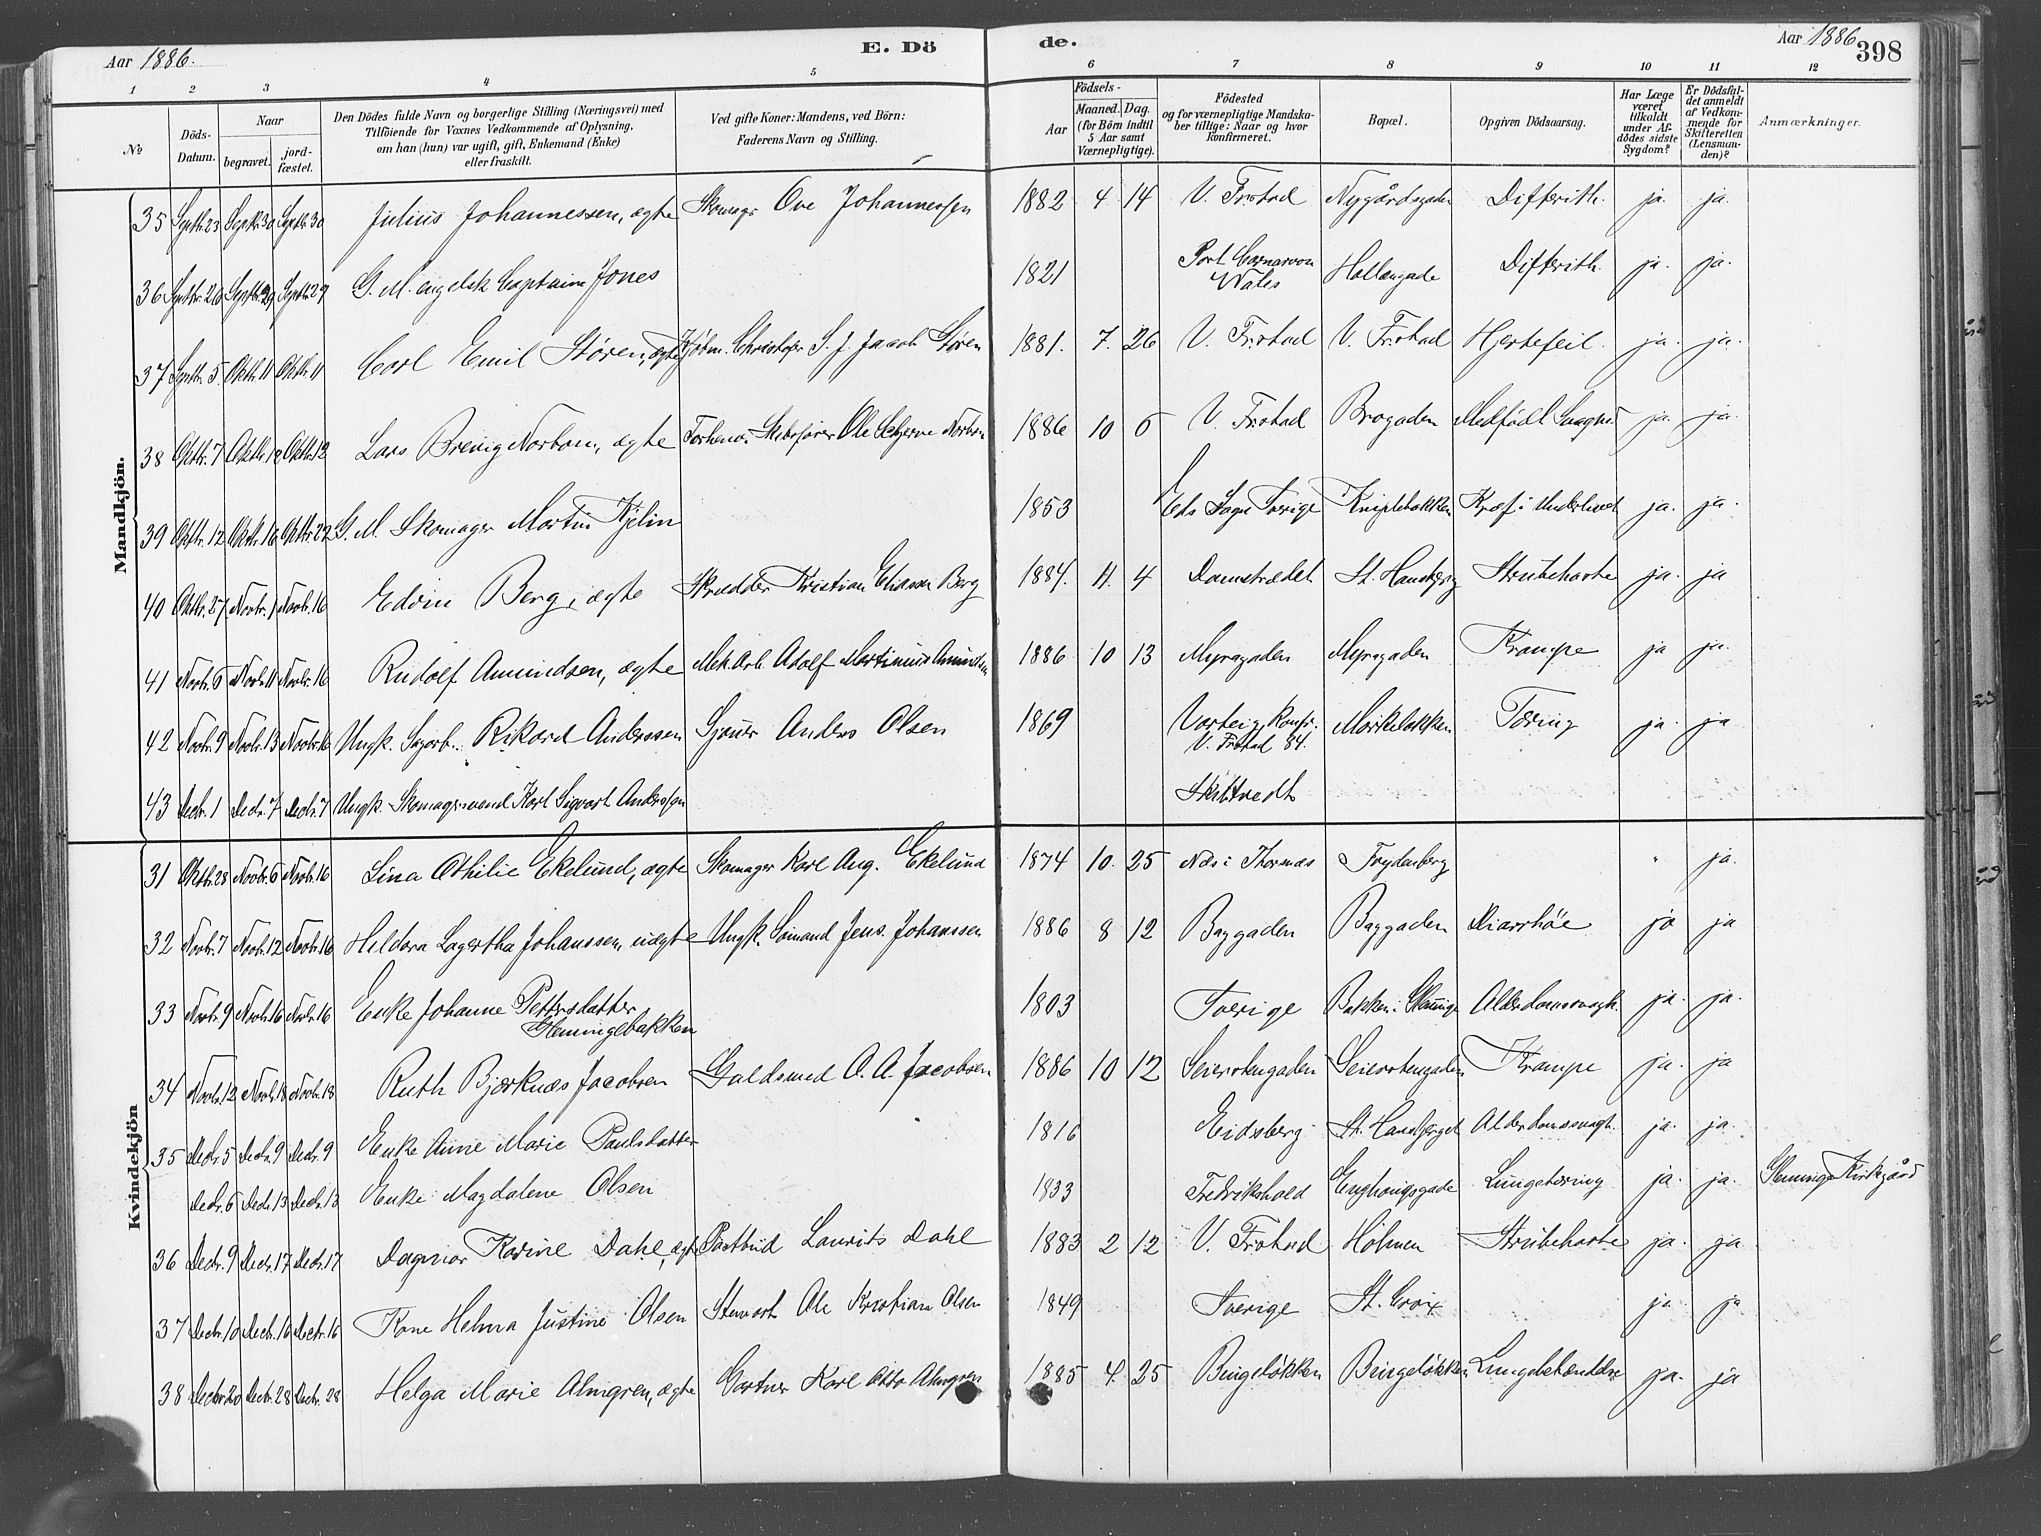 Aar 1886.
E. Dö
de.
Aar 1886
398
1 2 3 4 5 6 7 8 9 10 11 12
No
Döds-Datum.
Naar
begravet.
jord-fæstet.
Den Dödes fulde Navn og borgerlige Stilling (Næringsvei) med
Tilföiende for Voxnes Vedkommende af Oplysning,
om han (hun) var ugift, gift, Enkemand (Enke)
eller fraskilt.
Ved gifte Koner: Mandens, ved Börn:
Faderens Navn og Stilling.
Födsels-
Aar
Maaned. Dag.
(for Börn indtil
5 Aar samt
Værnepligtige).
Födested
og for værnepligtige Mandska-
ber tillige: Naar og hvor
konfirmeret.
Bopæl.
Opgiven Dödsaarsag.
Har Læge
været
tilkaldt
under Af-
dödes sidste
Sygdom?
Er Dödsfal-
det anmeldt
af Vedkom-
mende for
Skifteretten
(Lensman-
den)?
Anmærkninger.
Mandkjön.
35 Septbr. 23 Septbr. 30 Septbr. 30 Julius Johannessen, ægte Skomagr Ove Johannessen 1882 4 14 V. Frstad Nygårdsgaden Difterith. ja. ja.
36 Septbr. 26 Septbr. 29 Septbr. 29 G. M. engelsk Captain Jones 1821 Port Carnarvon Wales Hollengade Difterith. ja. ja.
37 5 Oktb. 11 Oktb. 11 Carl Emil Støren, ægte Kjøbm. Christofer S. J. Jacob Støren 1881. 7. 26 V. Frstad V. Frstad Hjertefeil. ja. ja.
38 Oktbr. 7 Oktb. 12 Oktb. 12 Lars Brevig Norbom, ægte Skibsfører Ole 1886 10 6 V. Frstad Brogaden Medfødt ja. ja.
39 Oktbr. 12 Oktbr. 16 Oktbr. 22 G. M. Skomager Martin Kjelin 1853 Eds Sogn Sverige Kniplebakken Kræft i Underlivet ja. ja.
40 Oktbr. 27 Novbr. 1 Novbr. 16 Edvin Berg, ægte Skrædder Kristian Eliassen Berg 1884. 11. 4 Damstrædet St. Hansberg Strubehoste ja. ja
41 Novbr. 6 Novbr. 11 Novbr. 16 Rudolf Amundsen, ægte Mek. Arb. Adolf Martinius Amundsen 1886 10 13 Myragaden Myragaden Krampe ja ja.
42 Novbr. 9 Novbr. 13 Novbr. 16 Ungk. Rikard Anderssen Sjauer Anders Olsen 1869 Varteig, Konfr. V. Frstad 84. Tæring ja. ja
43 Decbr. 1 Decbr. 7 Decbr. 7 Ungk. Skomagersvend Karl Sigvart Anderssen Skibtvedt
Kvindekjön
31 Oktbr. 28 Novbr. 6 Novbr. 16 Lina Othilie Ekelund, ægte Skomager Karl Aug. Ekelund 1874 10. 25 Næs i Frydenberg " ja.
32 Novbr. 7 Novbr. 12 Novbr. 16 Heldora Lagertha Johanssen, uægte Ungk. Sømand Jens Johanssen 1886 8 12 Baggaden Baggaden Diarrhöe ja ja
33 Novbr. 9 Novbr. 16 Novbr. 16 Enke Johanne Pettersdatter Glemmingebakken 1803 Sverige Bakken i Glemmige Alderdomssvagh. ja. ja.
34 Novbr. 12 Novbr. 18 Novbr. 18 Ruth Bjærknæs Jacobsen Guldsmed O. A. Jacobsen 1886 10 12 Seierstengaden Seierstengaden Krampe ja. ja
35 Decbr. 5 Decbr. 9 Decbr. 9 Enke Anne Marie Paulsdatter 1816 Eidsberg St. Hansberget Alderdomssvagh. ja. ja.
Decbr. 6 Decbr. 13 Decbr. 13 Enke Magdalene Olsen 1833 Fredrikshald Enghougsgade Lungetæring ja. ja. Glemminge Kirkegård
36 Decbr. 9 Decbr. 17 Decbr. 17 Dagmar Karine Dahl, ægte Postbud Laurits Dahl 1883 2 12 V. Frstad Holmen Strubehoste ja. ja
37 Decbr. 10 Decbr. 16 Decbr. 16 Kone Helma Justine Olsen Stuvart Ole Kristian Olsen 1849 Sverige St. Croix ja. ja.
38 Decbr. 20 Decbr. 28 Decbr. 28 Helga Marie Almgren, ægte Gartner Karl Otto Almgren 1885 4. 25 Bingeløkken Bingeløkken Lungebetændelse ja. ja